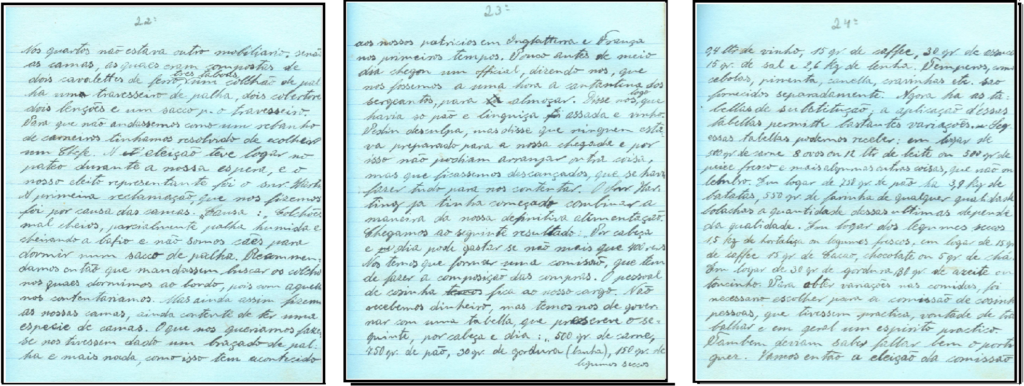 22=
Nos quartos não estava outro mobiliario, senão
as camas, as quaes eram compostas de
tres taboas,
dois cavalettes de ferro, um colchão de pal
ha uma travesseiro de palha, dois cobertore
dois lençoes e um sacco p. o travesseiro.
Para que não andassemos como um rebanho
de carneiros tinhamos resolvido de escolher
um Chefe. A eleição teve logar no
pateo durante a nossa espera, e o
nosso eleito representante foi o snr. Mart
A primeira reclamação que nos fizemos
foi por causa das camas. Causa: Colchões
mal cheios, parcialmente palha humida e
cheirando a bafio e não somos cães para
dormir num sacco de palha. Recommen-
damos então que mandassem buscar os colchõe
nos quaes dormimos ao bordo, pois com aquell
nos contentariamos. Mas ainda assim fizem
as nossas camas, ainda contente de ter uma
especie de camas. O que nos queriamos faze
se nos tivessem dado um braçado de pal
ha e mais nada, como isso tem acontecido
23=
aos nossos patricios em Inglatterra e França
nos primeiros tempos. Pouco antes de meio
dia chegou um official, dizendo nos, que
nos fossemos a uma hora a cantantina dos
sergeantes, para almoçar. Disse nos logo, que
havia só pão e linguiça assada e vinho.
Pediu desculpa, mas disse que ninguem esta
va preparado para a nossa chegada e por
isso não podiam arranjar outra cousa,
mas que ficassemos descançados, que se hara
fazer tudo para nos contenter. O Snr. Mar-
tins, ja tinha começado combinar a
maneira da nossa definitiva alimentação.
Chegamos ao seguinte resultado: Por cabeça
e por dia pode gastar se não mais que
Nos temos que formar uma comissão, que tem
de fazer a composição das compras. O pessoal
de cosinha fica ao nosso cargo. Não
recebemos dinheiro, mas temos nos de gover
nar com uma tabella, que prescreve o se-
guinte, por cabeça e dia:, 500 gr. de carne,
750 gr. de pão, 30 gr. de gordura (banha), 150 gr. de
legumes seccos
24=
ltr de vinho, 15 gr. de caffee, 30 gr. de assuc
15 gr. de sal e 2,6 kg de lenha. Temperos, como
cebolas, pimenta, canella, cosinhas etc. são
fornecidos separadamente. Agora ha as ta
bellas de substituição, a aplicação dessas
tabellas permitte bastantes variações. Seg.
essas tabellas podemos receber: em logar de
500 gr de carne 8 ovos ou 12 ltr de leite ou 500 gr de
peixe fresco e mais algumas outras coisas, que não ou
lembro. Em logar de 750 gr. de pão ha 3,9 kg de
batatas, 550 gr de farinha de qualquer qualidade
bolachas a quantidade dessas ultimas depende
da qualidade. Em logar dos legumes seccos
1.5 kg de hortaliça ou legumes frescos, em logar de 15 gr
de caffee 15 gr de Cacao, chocolate ou 5 gr de chá.
Em logar de 30 gr de gordura, 30 gr de azeite ou
toucinho. Para obter variações nas comidas, foi
necessario escolher para a comissão de cosinha
pessoas, que tivessem practica, vontade de tra
balhar e em geral um espirito practico.
Tambem deviam saber fallar bem o portu
guez. Vamos então a eleição da comissão